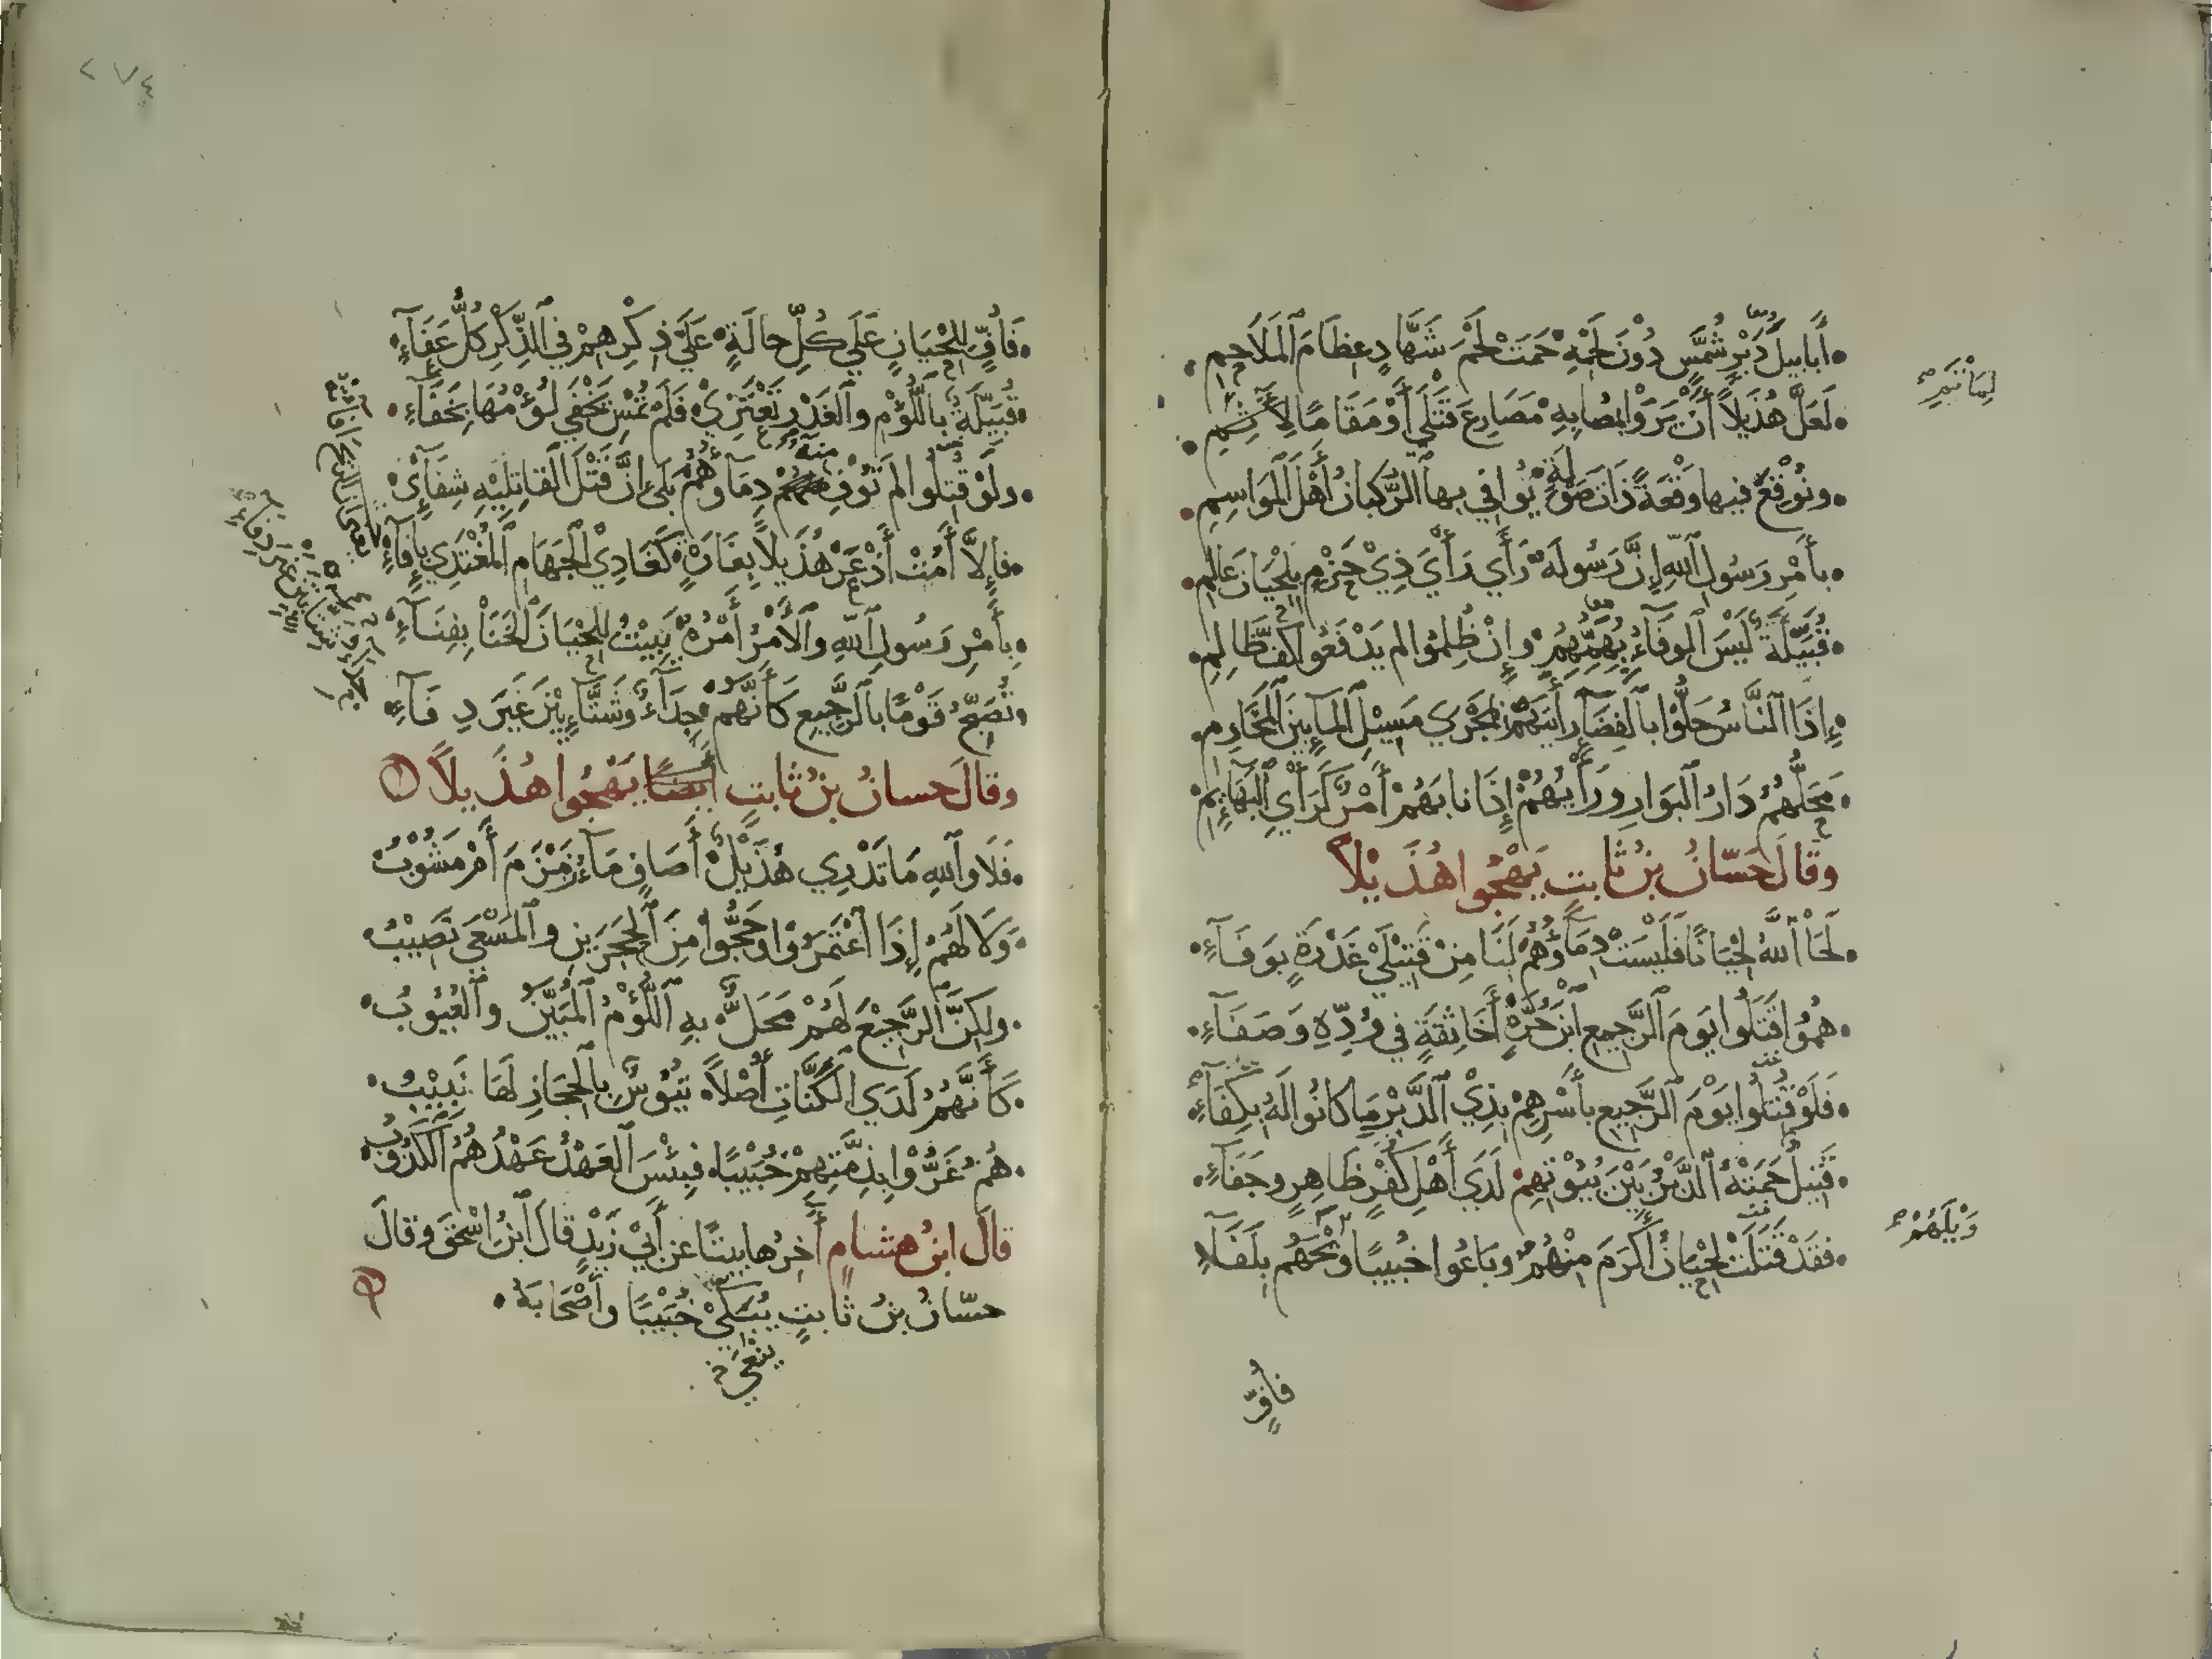 أَبابيلُ دَبْرٍ شُمَّسٍ دُوْنَ لَحْمِهِ حَمَتْ لَحْمَ شَهَّادٍ عِظَامَ ٱلمَلَاحِمِ
لَعَلَّ هُذَيلاً أَنْ يَرَوْا بِمُصَابِهِ مَصَارِعَ قَتْلَي أَوْ مَقَامًا لِمَأْتَمِ
ونُوْقِعَ فيها وَقْعَةً ذَاتَ صَوْلَةٍ يُوافي بها ٱلرُّكبانُ أَهْلَ ٱلْمَوَاسِمِ
بأَمْرِ رَسُولِ ٱللّهِ إِنَّ رَسُولَهُ رَأَي رَأْيَ ذِيْ حَزْمٍ بِلِحْيَانَ عَالِمِ
قُبَيِّلَةٌ لَيْسَ ٱلوَفَآءُ يُهِمُّهُمْ وإِنْ ظُلِمُوا لم يَدْفَعُوا كَفَّ ظَالِمِ
إِذَا ٱلنَّاسُ حَلُّوْا بالفِضَآرِ أَيتَهُمْ بِمَجْرَي مَسِيْلِ ٱلمآءِ بَيْنَ ٱلمَخَارِمِ
مَحَلُّهُمُ دَارُ ٱلبَوَارِ ورَأْيُهُمْ إِذَا نابَهُمْ أَمْرٌ كَرَأْيِ ٱلبَهَائِمِ
وقالَ حَسّانُ بنُ ثابتٍ يَهْجُوا هُذَيْلاً
لَحَا ٱللّهُ لِحْيَانًا فَلَيْسَتْ دِمَآؤُهُمْ لَنَا مِنْ قَتِيْلَيْ غَدْرَةٍ بِوَفَآءِ
هُمُوا قَتَلُوا يَومَ ٱلرَّجِيعِ ٱبْنَ حُرَّةٍ أَخَا ثِقَةٍ في وُدِّهِ وَصَفَآءِ
فَلَوْ قُتِلُوا يَوْمَ ٱلرَّجِيعِ بأَسْرِهِمْ بِذِيْ ٱلدَّبْرِ ما كانُوا لَهُ بِكِفَآءِ
قَتِيلٌ حَمَتْهُ ٱلدَّبْرُ بَيْنَ بُيُوْتِهِمْ لَدَي أَهْلِ كُفْرٍ ظَاهِرٍ وجَفَآءِ
فقَدْ قَتَلَتْ لِحْيَانُ أَكْرَمَ مِنْهُمُ وبَاعُوا خُبيبًا وَيْحَهُم بِلَفَآءِ
لِمَأْتَمِ
وَيْلَهُمْ
فأُفٍّ
٢٧٤
فَأُفٍّ لِلِحْيَانٍ عَلَي كُلِّ حالَةٍ عَلَي ذِكْرِهِمْ في ٱلذِّكْرِ كُلُّ عَفَآءِ
قُبَيِّلَةٌ بٱللُّؤْمِ وٱلغَدْرِ تَعْتَزِيْ فَلَمْ تُمْسِ يَخْفَي لُؤْمُهَا بِخَفَآءِ
ولَوْ قُتِلُوا لم تُوْفِ مِنهُ دِمَآؤُهُمْ بَلَي إِنَّ قَتْلَ ٱلقاتِلِيْهِ شِفَآئِيْ
فإِلاَّ أَمُتْ أَذْعَرْ هُذَيلاً بِغَارَةٍ كَغَادِيْ ٱلجَهَامِ ٱلمُغْتَدِي بإِفآءِ
بِأَمْرِ رَسُولِ ٱللّهِ وٱلأَمْرُ أَمْرُهُ يَبِيْتُ لِلِحْيَانَ ٱلخَنَا بِفِنَآءِ
نُصَبِّحُ قَوْمًا بالرَّجِيعِ كَأَنَّهُم جِدَآءُ شِتَآءٍ بِتْنَ غَيرَ دِفَآءِ
وقالَ حسانُ بنُ ثابتٍ أَيضًا يَهْجُوا هُذَيلاً
فَلَا وٱللهِ مَا تَدْرِي هُذَيْلٌ أَصَافٍ مَآءُ زَمْزَمَ أَمْ مَشُوْبُ
وَلا لَهُمُ إِذَا ٱعْتَمَرُوْا وحَجُّوا مِنَ ٱلحَجَرَيْنِ وٱلمَسْعَي نَصِيْبُ
ولكِنَّ ٱلرَّجِيْعَ لَهُمْ مَحَلٌّ بهِ ٱللُّؤْمُ ٱلمُبَيَّنُ وٱلعُيُوبُ
كَأَنَّهُمُ لَدَي ٱلكَنَّاتِ أُصْلاً تُيُوْسٌ بٱلحِجَازِ لَهَا نَبِيْبُ
هُمُ غَرُّوْا بِذِمَّتِهِمْ خُبَيْبًا فبِئْسَ ٱلعَهْدُ عَهْدُهُمُ ٱلكَذُوْبُ
قالَ ابنُ هشامٍ آخِرُها بيتًا عن أَبيْ زَيْدٍ قالَ ٱبنُ إسْحقَ وقالَ
حسّانُ بنُ ثابتٍ يُبَكِّيْ خُبَيْبًا وأَصْحَابَهُ